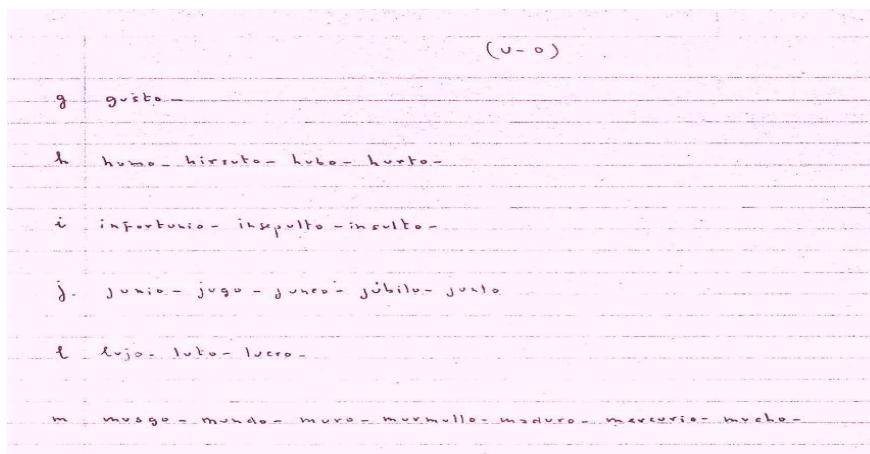 (u-o)
g gusto-
h humo- hirsuto- hubo- hurto-
i infortunio- insepulto- insulto-
j. junio- jugo- junco- júbilo- junto
l lujo- luto- lucro-
m musgo- mundo- muro- murmullo- maduro- mercurio- mucho-